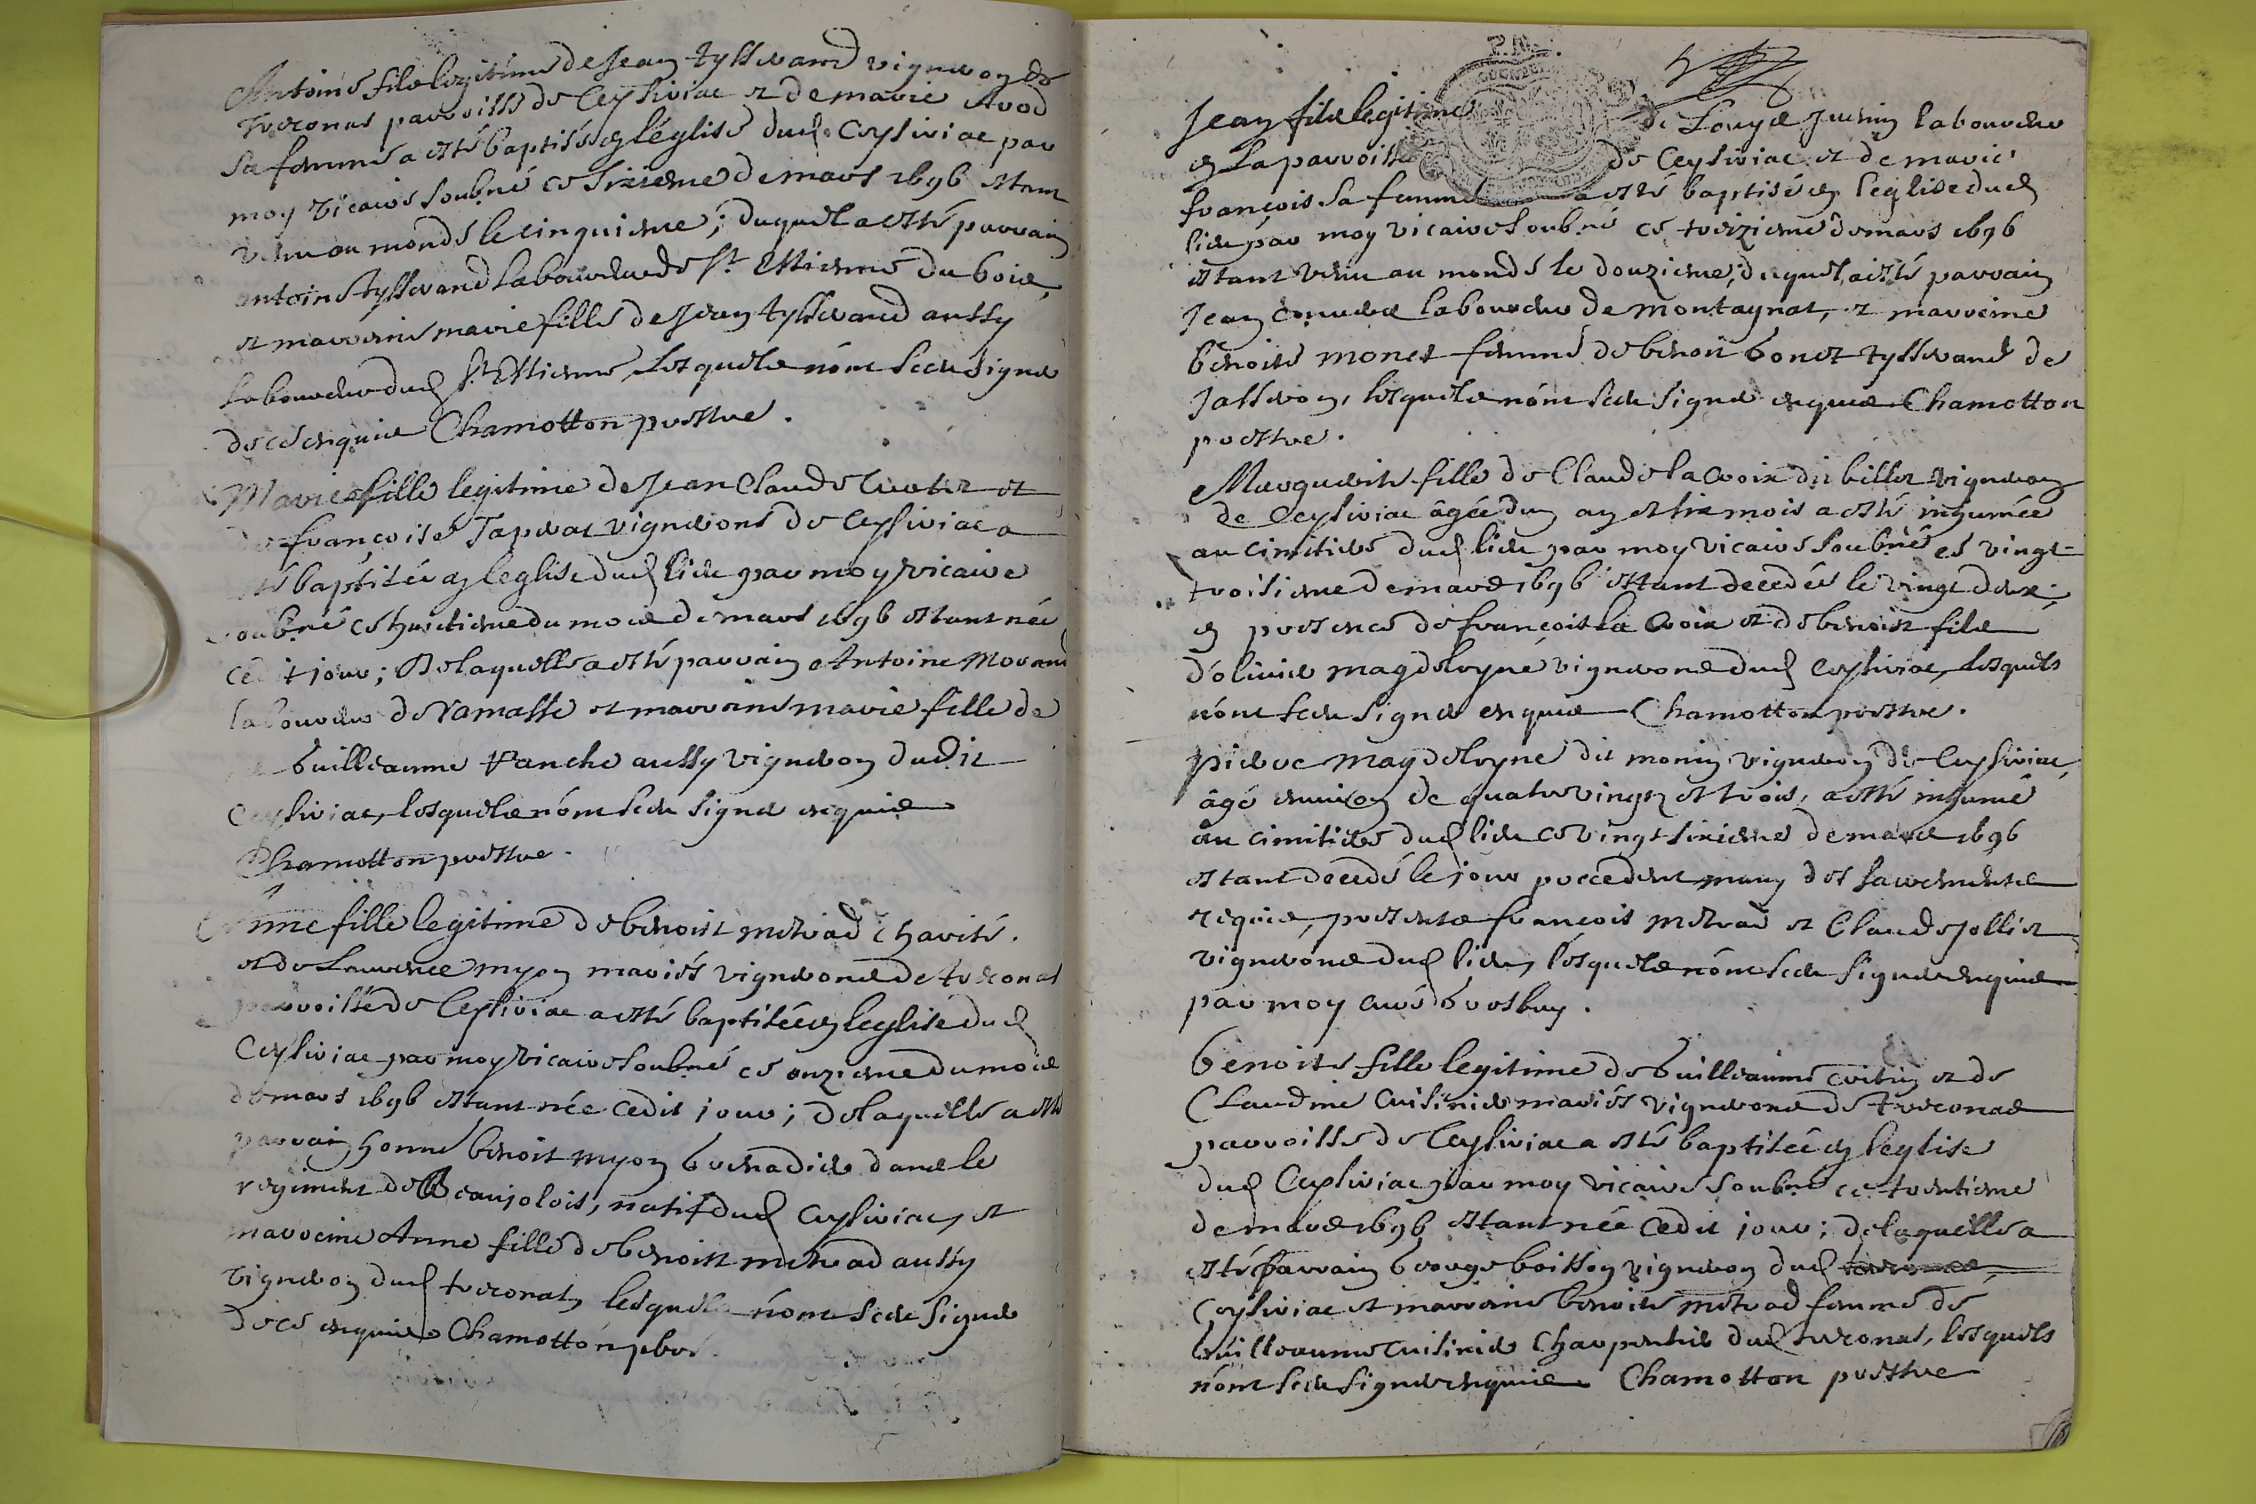 Antoine fils legitime de Jean tysserand vigneron de
treconas parroisse de Ceysiriac et de marie
sa femme a esté baptisé en léglise dud. Ceysiriac par
moy vicaire soubné ce sixieme de mars 1696 estant
venu au monde le cinquieme; duquel a esté parrain
antoine tysserand laboureur de st. Estienne du bois,
et marraine marie fille de Jean tysserand aussy
laboureur dud. st Estienne, lesquels n'ont sceu signer
de ce enquis Chamotton prestre.
Marie fille legitime de Jean Claude et
de françoise vignerons de Ceysiriac a
esté baptisée en leglise dud. lieu par moy vicaire
soubné ce huictieme du mois de mars 1696 estant née
cedit jour; De laquelle a esté parrain Antoine Morand
laboureur de ramasse et marraine marie fille de
Guilleaume aussy vigneron dudit
Ceysiriac, lesquels n'ont sceu signer enquis
Chamotton prestre.
fille legitime de benoist metrad charité.
et de Laurence myon mariés vignerons de treconas
parroisse de Ceysiriac a esté baptisée en leglise dud.
Ceysiriac par moy vicaire soubné ce onzieme du mois
de mars 1696 estant née cedit jour; de laquelle a esté
parrain honné benoist myon Grenadier dans le
regiment de Beaujolois, natif dud. Ceysiriac, et
marreine Anne fille de benoist metrad aussy
vigneron dud. treconas, lesquels n'ont sceu signer
de ce enquis Chamotton pbre.
Jean fils legitime de Louys laboureur
en la parroisse de Ceysiriac et de marie
françois sa femme a esté baptisé en leglise dud.
lieu par moy vicaire soubné ce treizieme de mars 1696
estant venu au monde le douzieme; duquel a esté parrain
Jean laboureur de montagnat, et marreine
benoite monet femme de benoit bonet tysserand de
Jasseron, lesquels n'ont sceu signer enquis Chamotton
prestre.
Marguerite fille de Claude la Croix dit billet vigneron
de Ceysiriac âgée d'un an et six mois a esté inhumée
au cimitiere dud. lieu par moy vicaire soubné ce vingt-
troisieme de mars 1696 estant decedée le vingt deux;
en presence de françois la Croix et de benoist fils
d'olivier magdeleyne vignerons dud. Ceysiriac, lesquels
n'ont sceu signer enquis Chamotton prestre.
pierre magdeleyne dit monin vigneron de Ceysiriac,
âgé environ de quatre vingt et trois, a esté inhumé
au cimitiere dud. lieu ce vingt sixieme de mars 1696
estant decedé le jour precedent, muny des sacrements
requis, presents françois metrad et Claude Jolliet
vignerons dud. lieu, lesquels n'ont sceu signer enquis
par moy curé
benoite fille legitime de Guilleaume et de
Claudine Cuisinier mariés vignerons de treconas
parroisse de Ceysiriac a esté baptisée en leglise
dud. Ceysiriac par moy vicaire soubné ce trentieme
de mars 1696 estant née cedit jour; de laquelle a
esté parrain George boisson vigneron dud.
Ceysiriac et marreine benoite metrad femme de
Guilleaume Cuisinier Charpentier dud. treconas, lesquels
n'ont sceu signer enquis Chamotton prestre